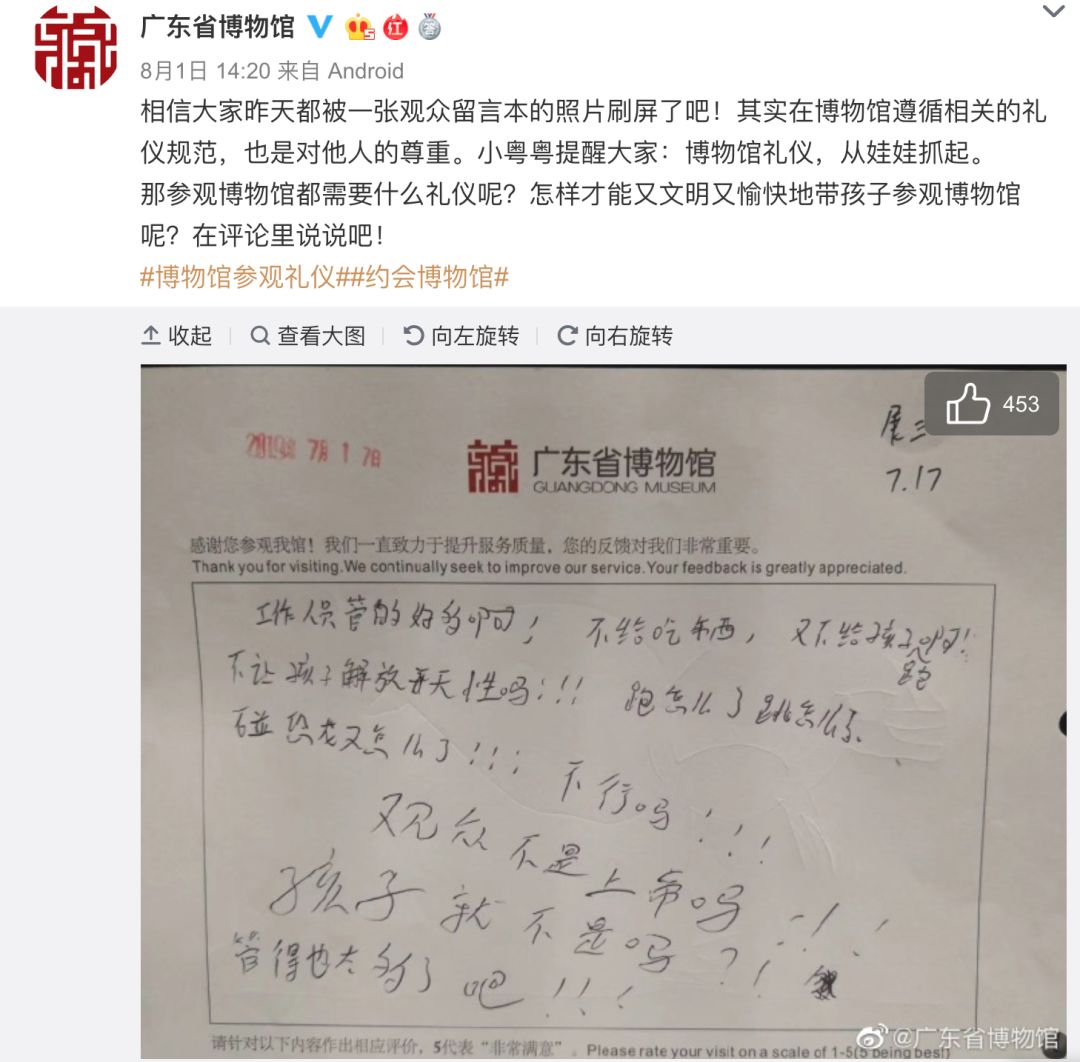 广东省博物馆
8月1日 14:20 来自 Android
相信大家昨天都被一张观众留言本的照片刷屏了吧！其实在博物馆遵循相关的礼
仪规范，也是对他人的尊重。小粤粤提醒大家：博物馆礼仪，从娃娃抓起。
那参观博物馆都需要什么礼仪呢？怎样才能又文明又愉快地带孩子参观博物馆
呢？在评论里说说吧！
#博物馆参观礼仪##约会博物馆#
收起 查看大图 向左旋转 向右旋转
453
展三
2019年 7月 1 7日
广东省博物馆
GUANGDONG MUSEUM
7.17
感谢您参观我馆！我们一直致力于提升服务质量，您的反馈对我们非常重要。
Thank you for visiting.We continually seek to improve our service.Your feedback is greatly appreciated.
工作人员管的好多啊！ 不给吃东西，又不给孩子跑啊！
不让孩子解放天性吗！！！ 跑怎么了 跳怎么了
碰恐龙又怎么了！！！
不行吗！！！
观众不是上帝吗！！！
孩子就不是吗？！
管得也太多了吧！！！
请针对以下内容作出相应评价，5代表“非常满意”。Please rate your visit on a scale of 1-5(5 being best)
@广东省博物馆